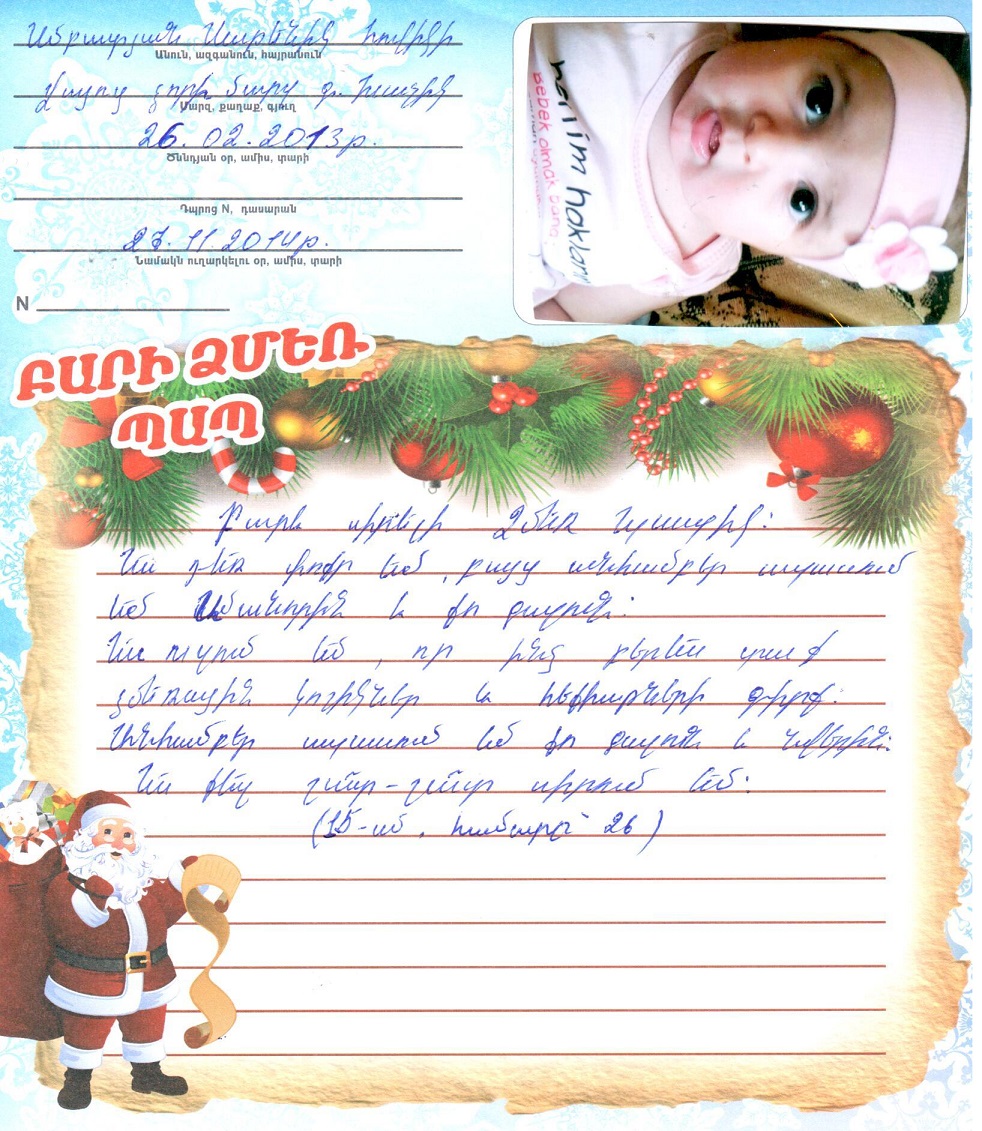 Սմբատյան Արփենիկ Հովիկի
Անուն, ազգանուն, հայրանուն
Վայոց ձորի մարզ գ. Խաչիկ
Մարզ, քաղաք, գյուղ
26.02.2013թ.
Ծննդյան օր, ամիս, տարի
Դպրոց N, դասարան
27.11.2014թ.
Նամակն ուղարկելու օր, ամիս, տարի
N
ԲԱՐԻ ՁՄԵՌ
ՊԱՊ
benim hakların
bebek olmak bana
Բարև սիրելի Ձմեռ պապիկ:
Ես դեռ փոքր եմ, բայց անհամբեր սպասում
եմ Ամանորին և քո գալուն:
Ես ուզում եմ, որ ինձ բերես տաք
ձմեռային կոշիկներ և հեքիաթների գիրք:
Անհամբեր սպասում եմ քո գալուն և նվերին:
Ես քեզ շատ-շատ սիրում եմ:
(15-ամ. համարը՝ 26)